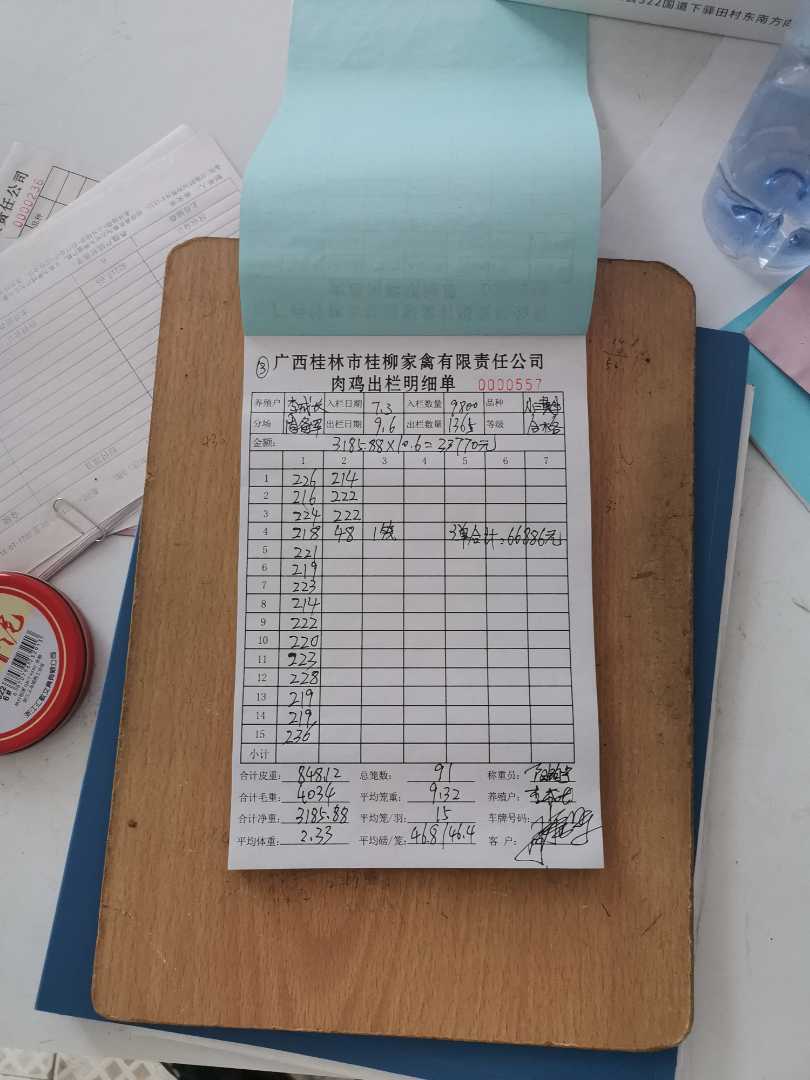 322国道下驿田村东南方向
责任公司
0000236
③ 广西桂林市桂柳家禽有限责任公司
肉鸡出栏明细单 0000557
养殖户 李成长 入栏日期 7.3 入栏数量 9800 品种
分场 出栏日期 9.6 出栏数量 1365 等级 合格
金额: 3185.88×10.6=33770元
1 2 3 4 5 6 7
1 226 214
2 216 222
3 224 222
4 218 48 1笼 3单合计:66886元
5 221
6 219
7 223
8 214
9 222
10 220
11 223
12 228
13 219
14 219
15 236
小计
合计皮重: 848.12 总笼数: 91 称重员:
合计毛重: 4034 平均笼重: 9.32 养殖户: 李成长
合计净重: 3185.88 平均笼/羽: 15 车牌号码:
平均体重: 2.33 平均磅/笼: 46.8/46.4 客户:
浙江汇联文具有限公司